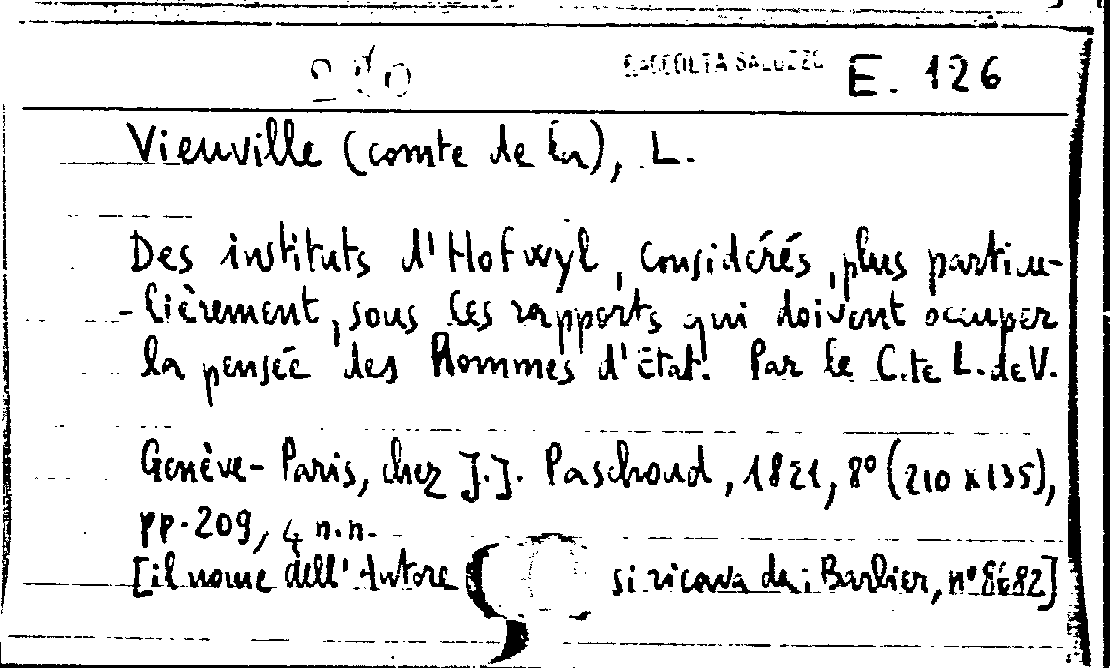 RACCOLTA SALUZZO E. 126
Vieuville (comte de la), L.
Des instituts d'Hofwyl, considérés, plus particu-
-lièrement, sous les rapports qui doivent occuper
la pensée des Hommes d'Etat. Par le C.te L. de V.
Genève-Paris, chez J.J. Paschoud, 1821, 8° (210 x 135),
pp. 209, 4 n.n.
[il nome dell'Autore si ricava da: Barbier, n°